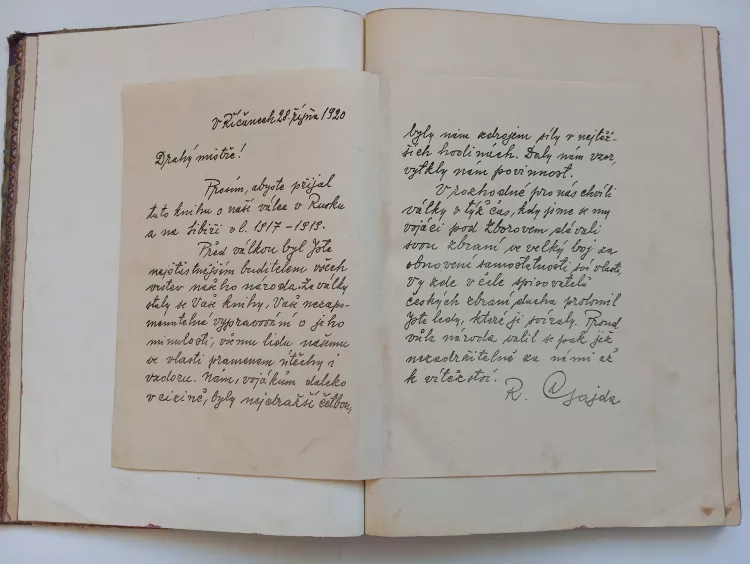 V Říčanech 28. října 1920
Drahý mistře!
Prosím, abyste přijal
tuto knihu o naší válce v Rusku
a na Sibiři v l. 1917-1919.
Před válkou byl jste
nejjistnějším buditelem všech
vrstev našho národa. Za války
staly se Vaše knihy, Vaše nezapo-
menutelná vypravování o jeho
minulosti, všemu lidu našemu
ve vlasti pramenem útěchy i
vzdoru. Nám, vojákům daleko
v cizině, byly nejdražší četbou,
byly nám zdrojem síly v nejtěž-
ších hodinách. Daly nám vzor,
vytkly nám povinnost.
V rozhodné pro nás chvíli
války v týž čas, kdy jsme se my
vojáci pod Zborovem, dávali
svou zbraní ve velký boj za
obnovení samostatnosti své vlasti,
Vy zde v čele spisovatelů
českých zbraní ducha prolomil
jste ledy, které ji svíraly. Proud
vůle národa valil se pak již
nezadržitelně za námi až
k vítězství.
R. Gajda